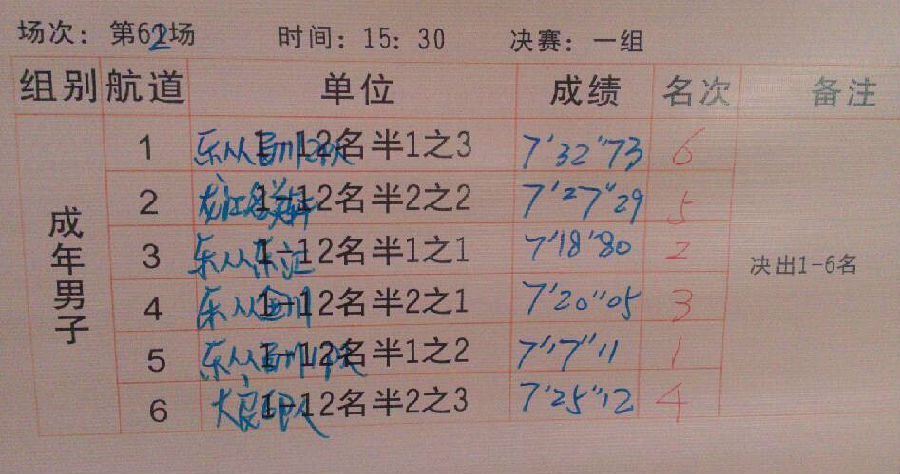 场次：第62场 时间：15：30 决赛：一组
组别 航道 单位 成绩 名次 备注
成年男子
1 1-12名半1之3 7'32"73 6
2 1-12名半2之2 7'27"29 5
3 乐从乐 1-12名半1之1 7'18"80 2
决出1-6名
4 乐从 1-12名半2之1 7'20"05 3
5 乐从 1-12名半1之2 7'17"11 1
6 大良 1-12名半2之3 7'25"12 4